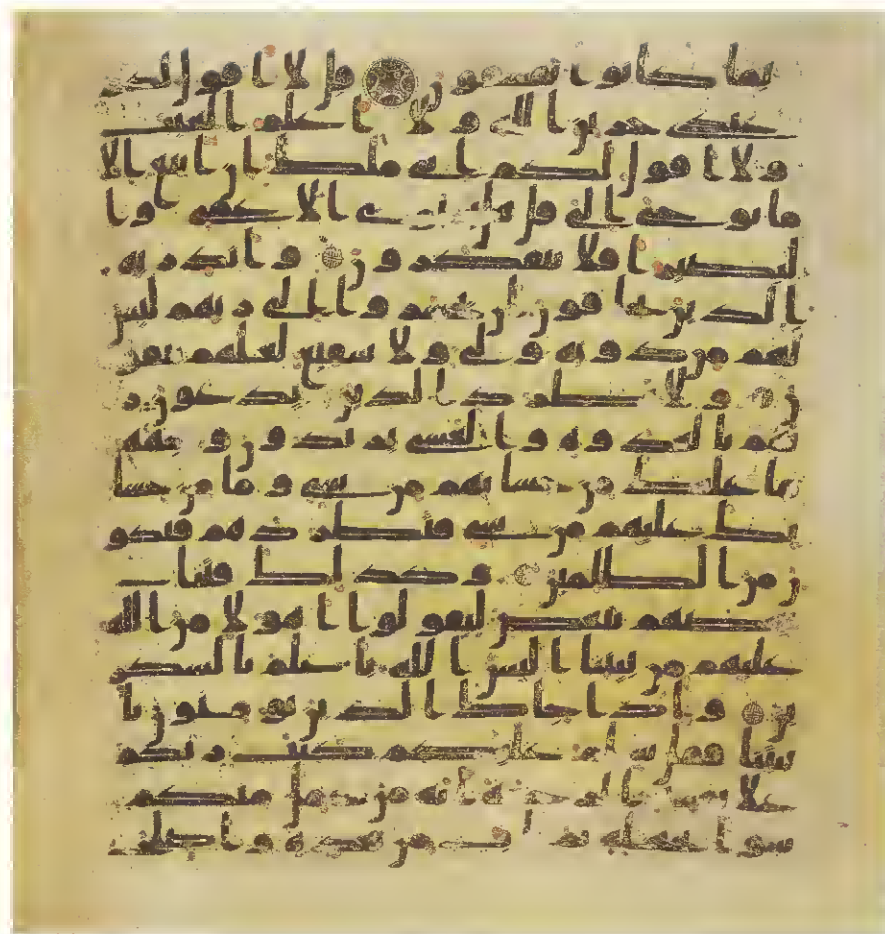 بما كانوا يفسقون قل لا اقول لكم
عندي خزاين الله ولا اعلم الغيب
ولا اقول لكم اني ملك ان اتبع الا
ما يوحى الي قل هل يستوي الاعمى وا
لبصير افلا تتفكرون وانذر به
الذين يخافون ان يحشروا الى ربهم ليس
لهم من دونه ولي ولا شفيع لعلهم يتقو
ن ولا تطرد الذين يدعون ر
بهم بالغدوة والعشي يريدون وجهه
ما عليك من حسابهم من شي وما من حسا
بك عليهم من شي فتطردهم فتكو
ن من الظلمين وكذلك فتنا
بعضهم ببعض ليقولوا اهولا من الله
عليهم من بيننا اليس الله باعلم بالشكر
ين واذا جاك الذين يومنون با
يتنا فقل سلم عليكم كتب ربكم
على نفسه الرحمة انه من عمل منكم
سوا بجهلة ثم تاب من بعده واصلح